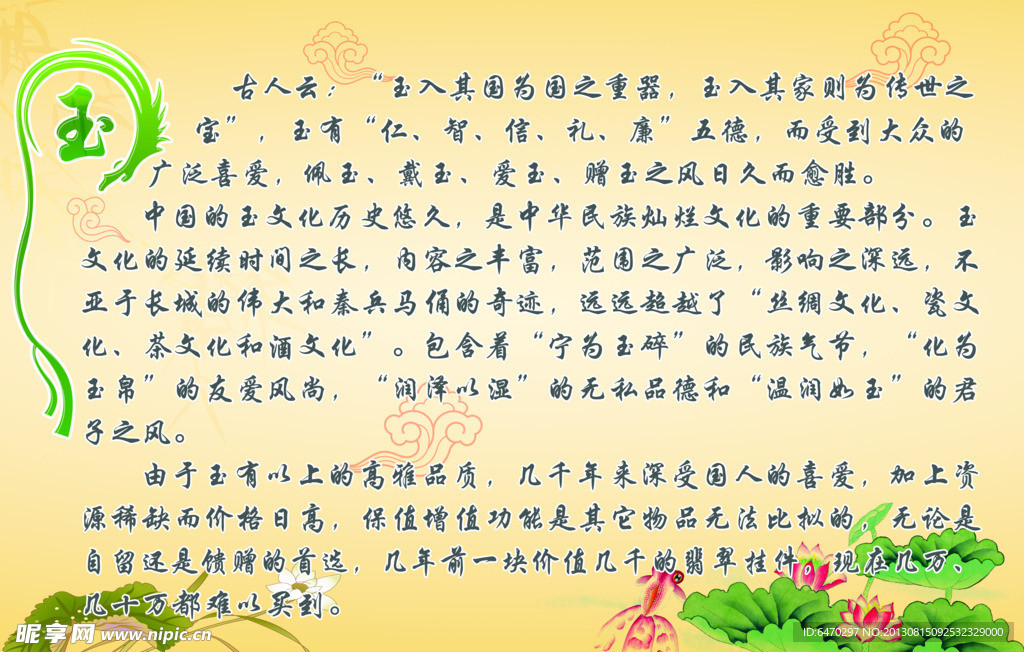 玉
古人云：“玉入其国为国之重器，玉入其家则为传世之
宝”，玉有“仁、智、信、礼、廉”五德，而受到大众的
广泛喜爱，佩玉、戴玉、爱玉、赠玉之风日久而愈胜。
中国的玉文化历史悠久，是中华民族灿烂文化的重要部分。玉
文化的延续时间之长，内容之丰富，范围之广泛，影响之深远，不
亚于长城的伟大和秦兵马俑的奇迹，远远超越了“丝绸文化、瓷文
化、茶文化和酒文化”。包含着“宁为玉碎”的民族气节，“化为
玉帛”的友爱风尚，“润泽以湿”的无私品德和“温润如玉”的君
子之风。
由于玉有以上的高雅品质，几千年来深受国人的喜爱，加上资
源稀缺而价格日高，保值增值功能是其它物品无法比拟的，无论是
自留还是馈赠的首选，几年前一块价值几千的翡翠挂件，现在几万、
几十万都难以买到。
昵享网 www.nipic.cn
ID:6470297 NO:20130815092532329000